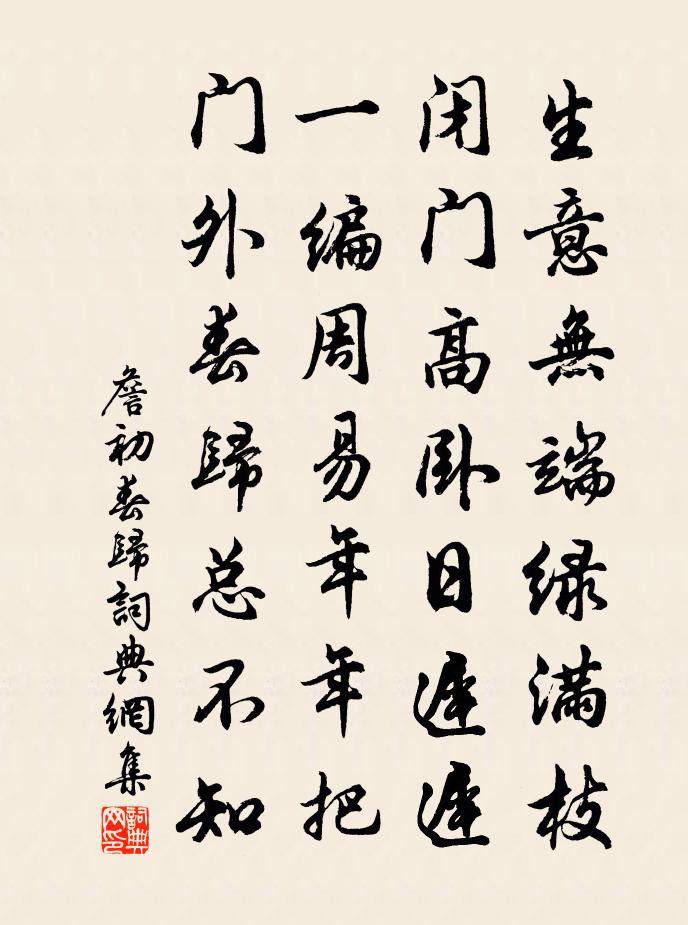 生意無端绿满枝
闭门高卧日遲遲
一编周易年年把
门外春歸总不知
詹初春歸詞典網集
詞典网印